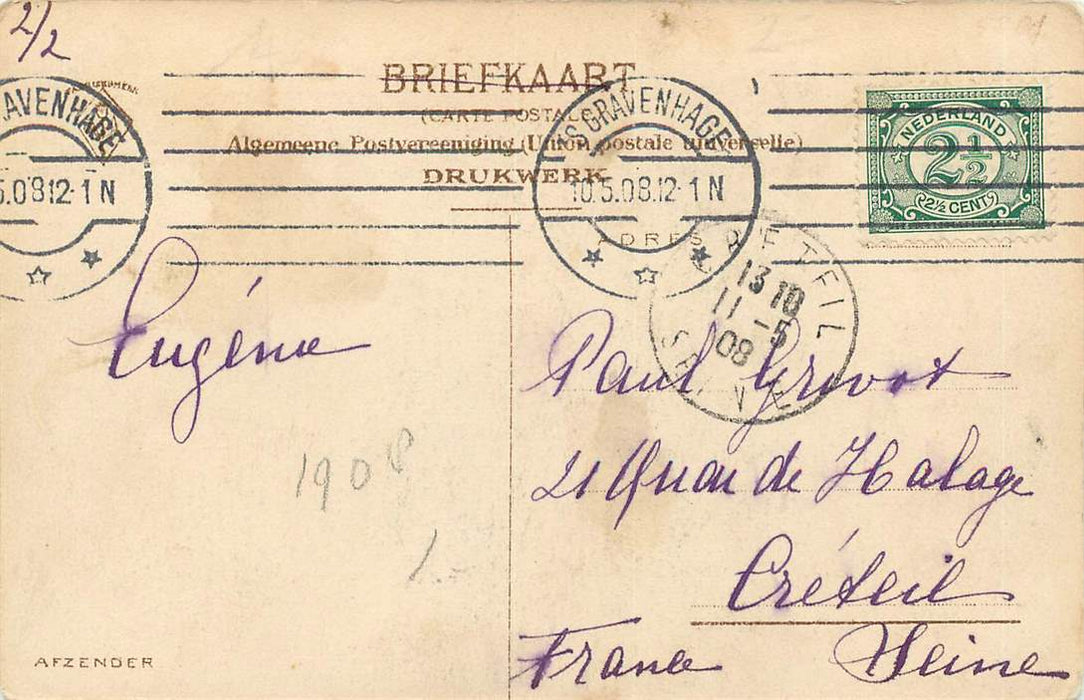 2/2
BRIEFKAART
(CARTE POSTALE)
Algemeene Postvereeniging (Union postale universelle)
DRUKWERK
ADRES
'S GRAVENHAGE
10.5.08.12-1N
AVENHAGE
5.08.12-1N
NEDERLAND
2½
2½ CENT
CRETEIL
13 10
11 -5
08
SEINE
Eugénie
1908
Paul Grivot
21 Quai de Halage
Créteil
France Seine
AFZENDER